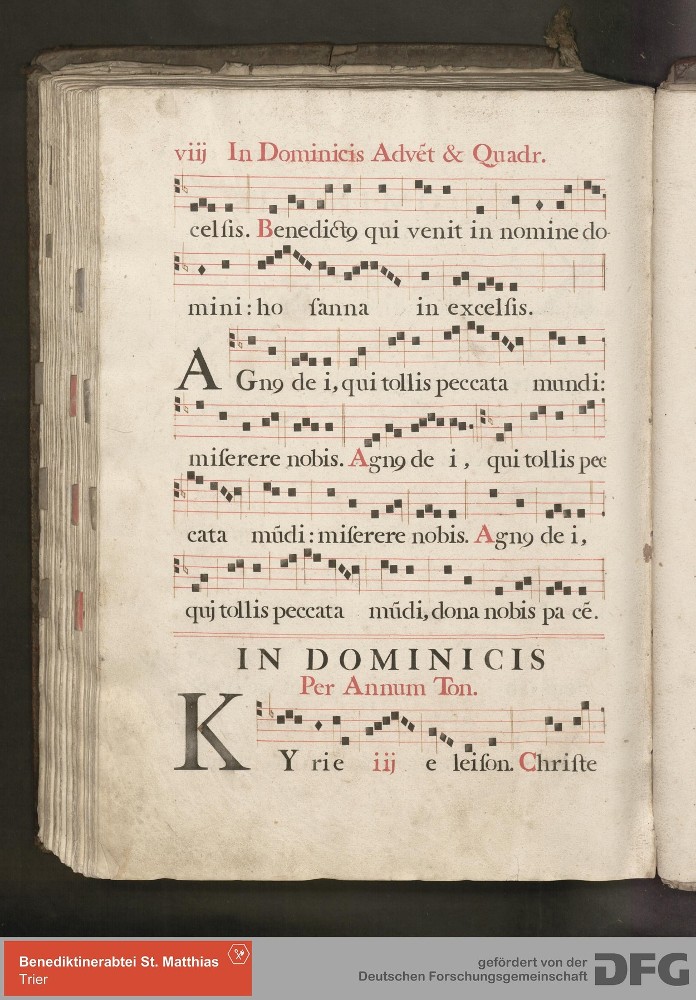 viij In Dominicis Advẽt & Quadr.
celſis. Benedictꝯ qui venit in nomine do-
mini: ho ſanna in excelſis.
AGnꝯ de i, qui tollis peccata mundi:
miſerere nobis. Agnꝯ de i, qui tollis pec
cata mũdi: miſerere nobis. Agnꝯ de i,
quj tollis peccata mũdi, dona nobis pa cẽ.
IN DOMINICIS
Per Annum Ton.
KY rie iij e leiſon. Chriſte
Benediktinerabtei St. Matthias
Trier
gefördert von der
Deutschen Forschungsgemeinschaft
DFG